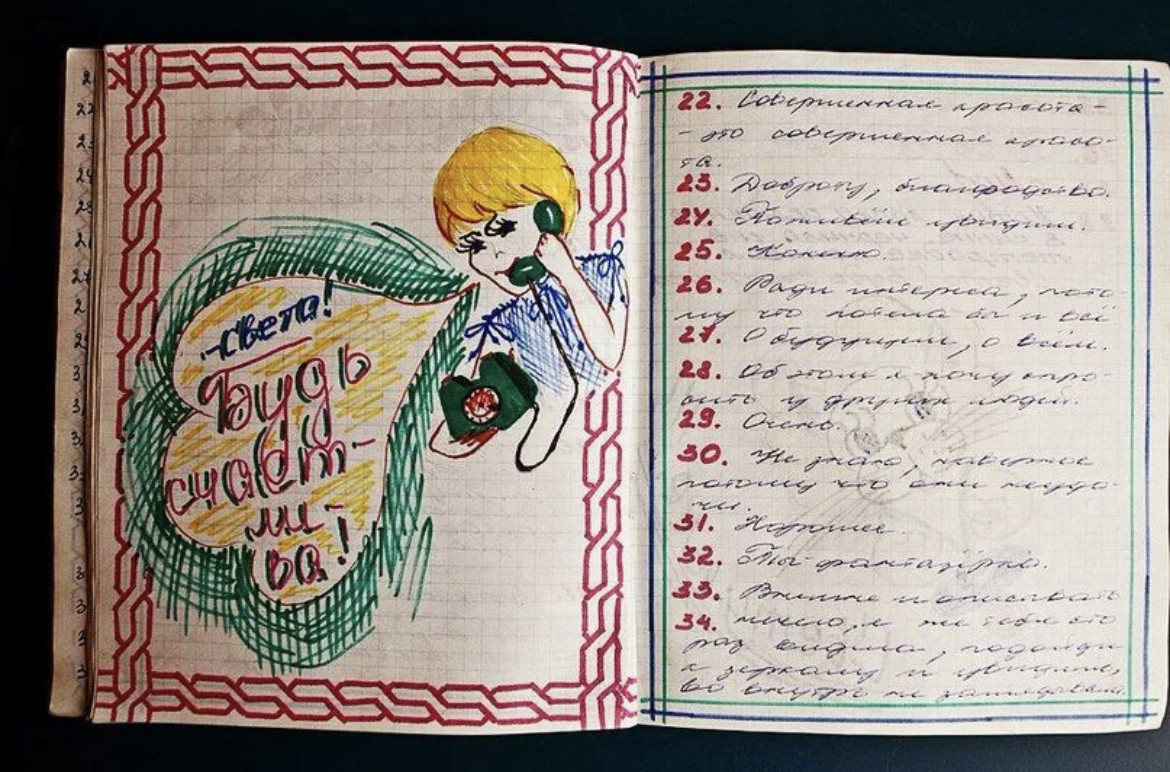 Света!
Будь
счаст-
ли-
ва!
22. Совершенная красота -
- это совершенная красо-
та.
23. Доброту, благородство.
24. Поживём увидим.
25. Конечно
26. Ради интереса, пото
му что хотела бы и всё
27. О будущем, о всём.
28. Об этом я хочу спро-
сить у других людей.
29. Очень.
30. Не знаю, наверное
потому что они неуда-
чи.
31. Хорошее.
32. Ты фантазёрка.
33. Внешне и описывать
34. нечего, я же тебя сто
раз видела, подойди
к зеркалу и увидишь,
во внутрь не заглядывала.